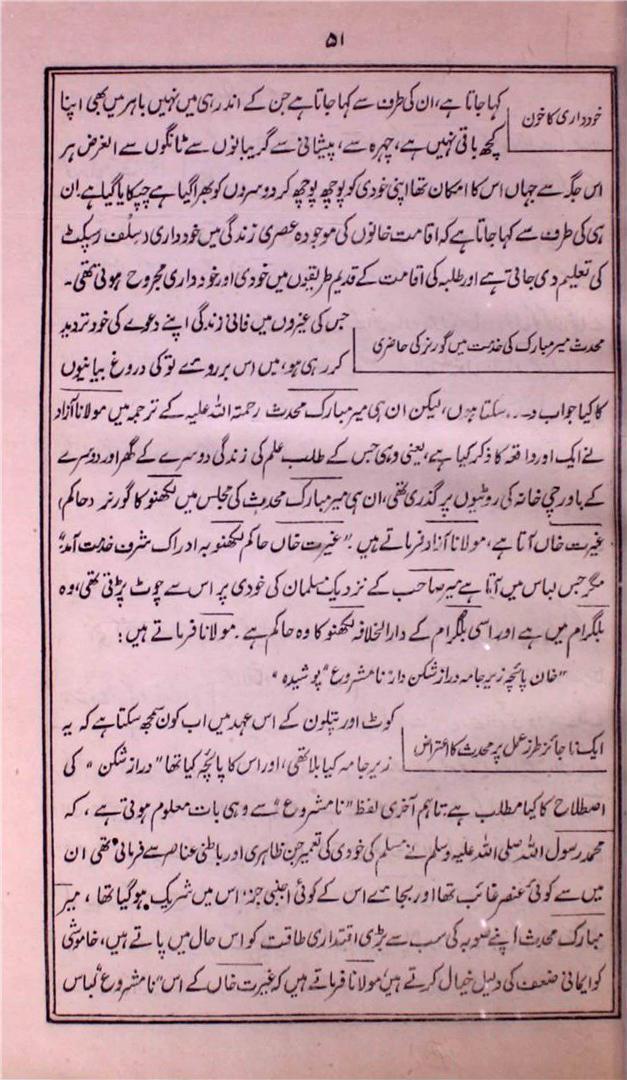 ۵۱
خودداری کا خون
کہا جاتا ہے، ان کی طرف سے کہا جاتا ہے جن کے اندر ہی میں نہیں باہر میں بھی اپنا
کچھ باقی نہیں ہے، چہرہ سے، پیشانی سے گریبانوں سے ٹانگوں سے الغرض ہر
اس جگہ سے جہاں اس کا امکان تھا اپنی خودی کو پوچھ پوچھ کر دوسروں کو بھرا گیا ہے چپکایا گیا ہے ان
ہی کی طرف سے کہا جاتا ہے کہ اقامت خانوں کی موجودہ عصری زندگی میں خودداری دسلف رسپکٹ
کی تعلیم دی جاتی ہے اور طلبہ کی اقامت کے قدیم طریقوں میں خودی اور خودداری مجروح ہوتی تھی۔
محدث میر مبارک کی خدمت میں گورنر کی حاضری
جس کی غیروں میں فانی زندگی اپنے دعوے کی خود تردید
کر رہی ہو، میں اس بر روئے تو کی دروغ بیانیوں
کا کیا جواب دے سکتا ہوں، لیکن ان ہی میر مبارک محدث رحمتہ اللہ علیہ کے ترجمہ میں مولانا آزاد
نے ایک اور واقعہ کا ذکر کیا ہے، یعنی وہی جس کے طلب علم کی زندگی دوسرے کے گھر اور دوسرے
کے باورچی خانہ کی روٹیوں پر گذری تھی، ان ہی میر مبارک محدث کی مجلس میں لکھنؤ کا گورنر دحاکم)
غیرت خاں آتا ہے، مولانا آزاد فرماتے ہیں۔ "غیرت خاں حاکم لکھنو بہ ادراک شرف خدمت آمد"
مگر جس لباس میں آتا ہے میر صاحب کے نزدیک مسلمان کی خودی پر اس سے چوٹ پڑتی تھی، وہ
بلگرام میں ہے اور اسی بلگرام کے دارالخلافہ لکھنو کا وہ حاکم ہے۔ مولانا فرماتے ہیں:
"خان پائچہ زیر جامہ دراز شکن دار" نامشروع" پوشیدہ"
ایک ناجائز طرز عمل پر محدث کا اعتراض
کوٹ اور پتلون کے اس عہد میں اب کون سمجھ سکتا ہے کہ یہ
زیر جامہ کیا بلا تھی، اور اس کا پائچہ کیا تھا "دراز شکن" کی
اصطلاح کا کیا مطلب ہے، تاہم آخری لفظ "نامشروع" سے وہی بات معلوم ہوتی ہے، کہ
محمد رسول اللہ صلی اللہ علیہ وسلم نے مسلم کی خودی کی تعمیر جن ظاہری اور باطنی عناصر سے فرمائی تھی ان
میں سے کوئی عنصر غائب تھا اور بجائے اس کے کوئی اجنبی جزء اس میں شریک ہو گیا تھا، میر
مبارک محدث اپنے صوبہ کی سب سے بڑی اقتداری طاقت کو اس حال میں پاتے ہیں، خاموشی
کو ایمانی ضعف کی دلیل خیال کرتے ہیں مولانا فرماتے ہیں کہ غیرت خاں کے اس "نامشروع" لباس